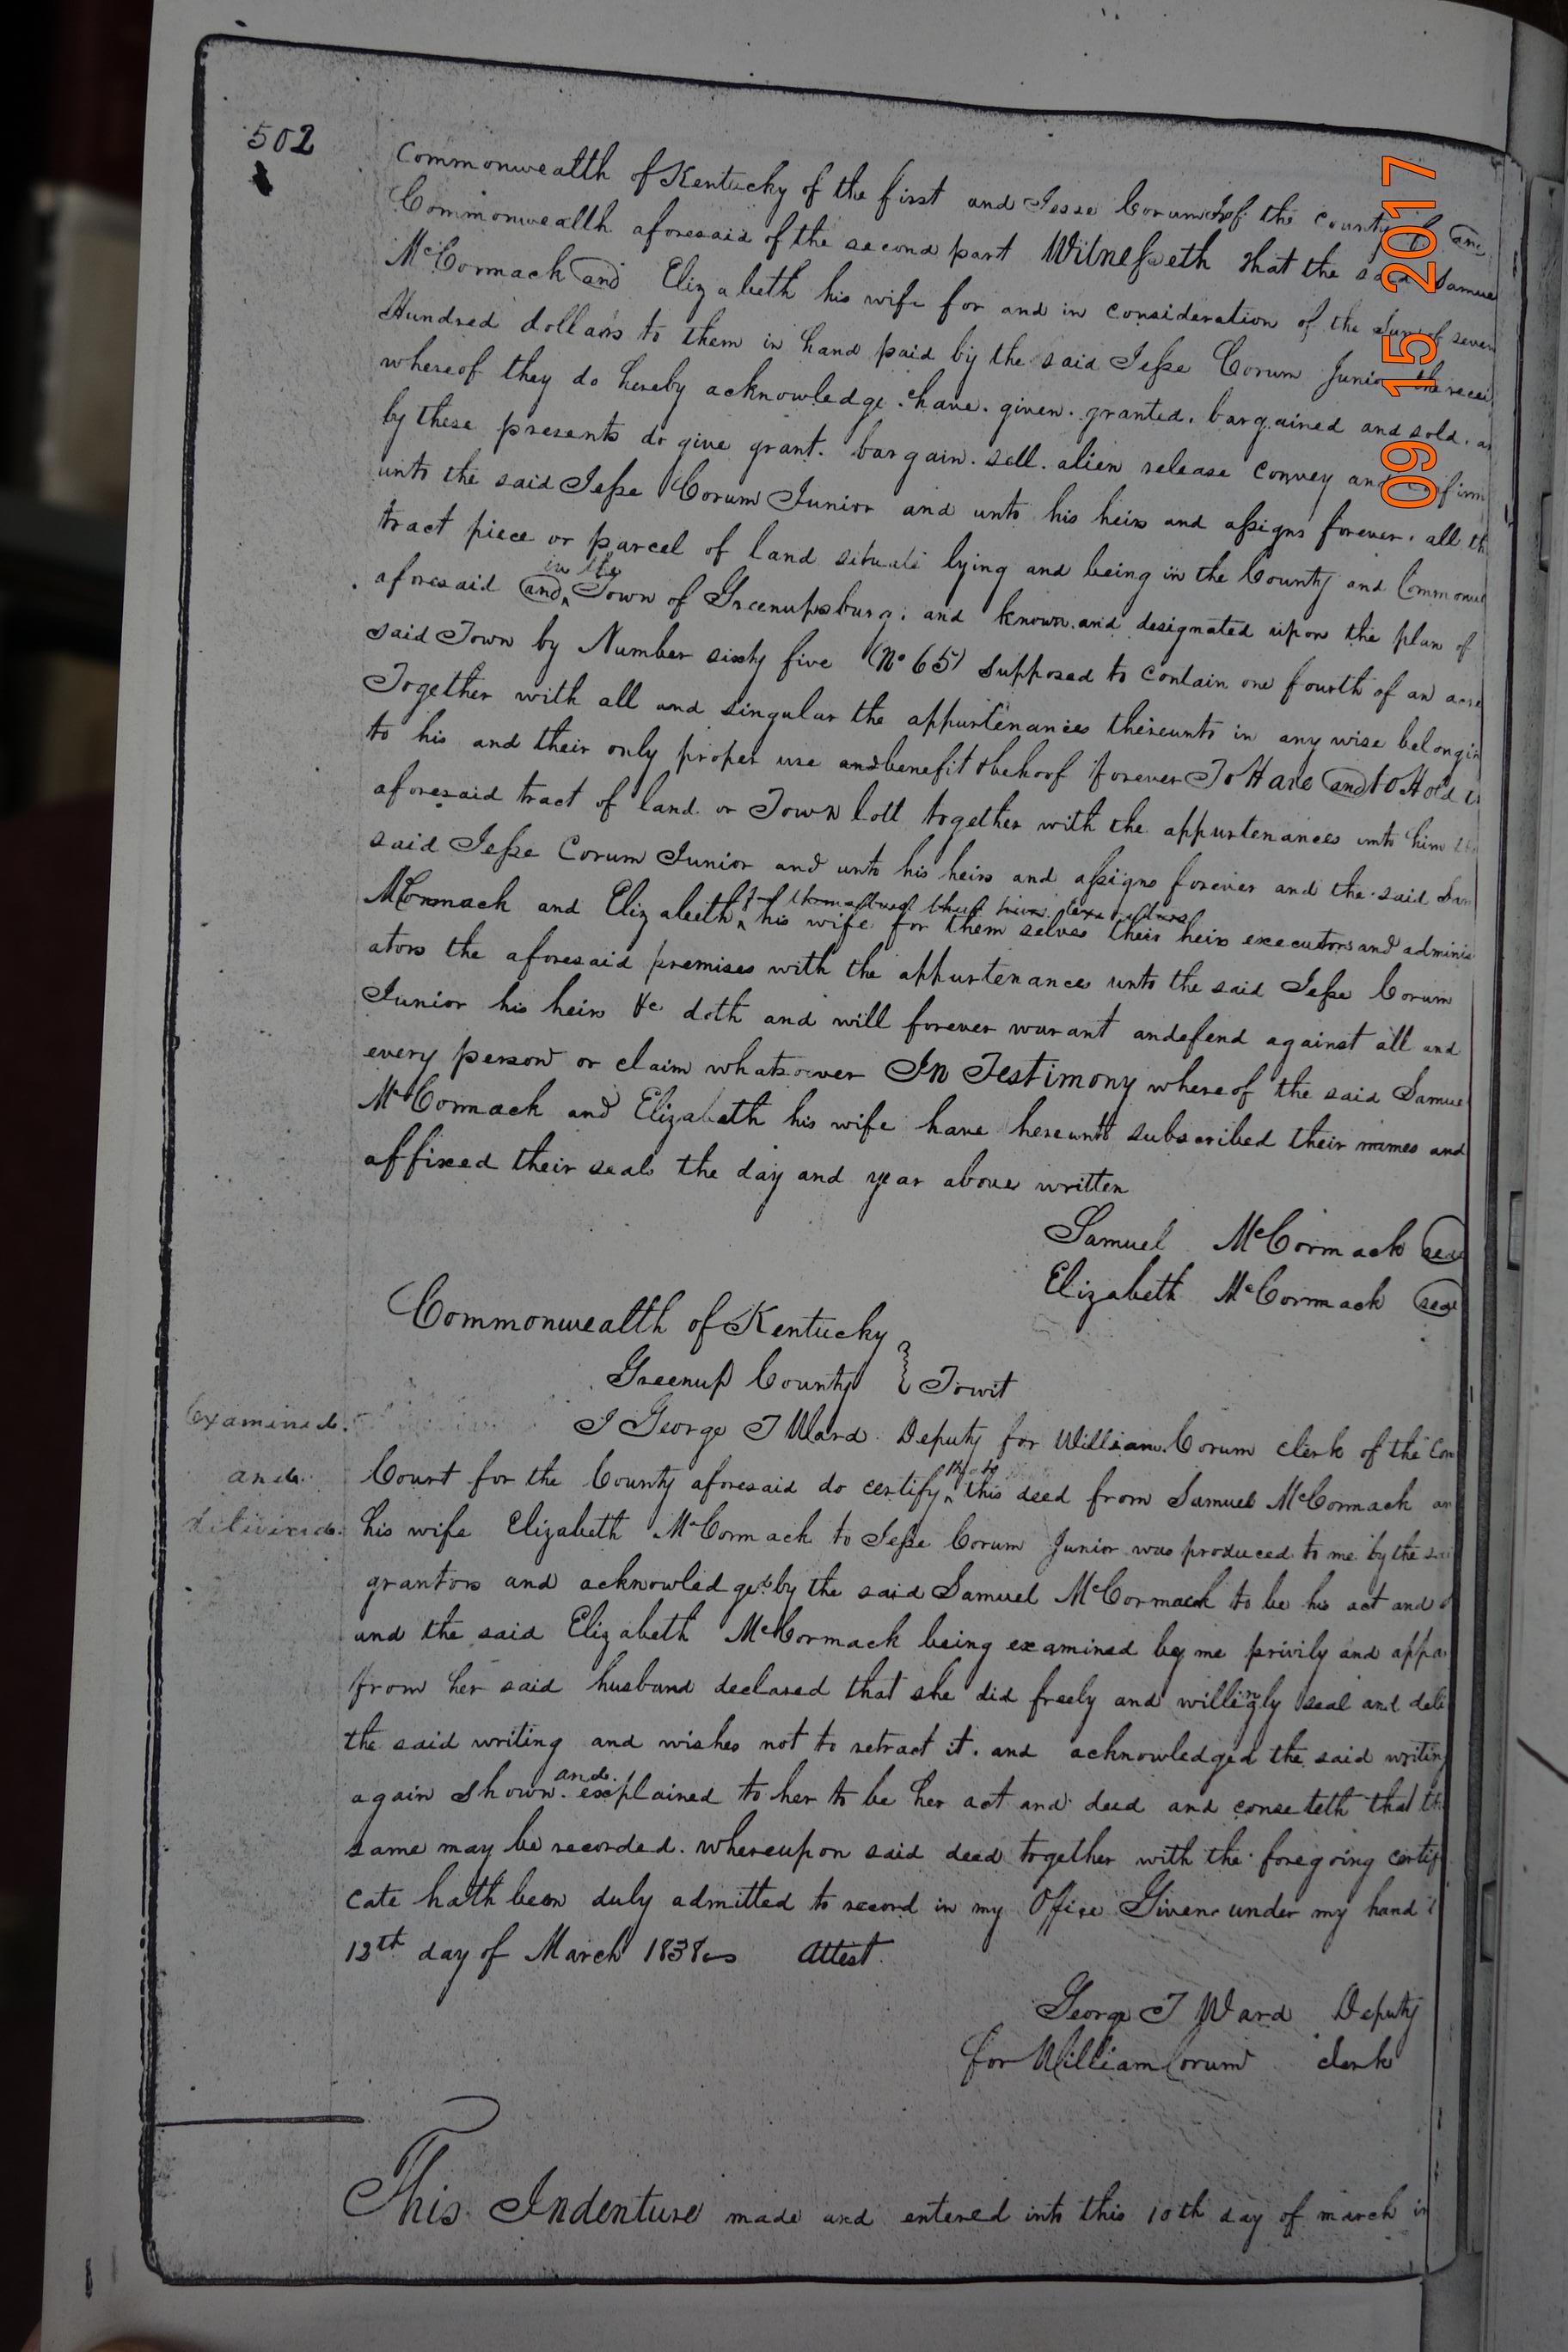 502
Commonwealth of Kentucky of the first and Jesse Corum Jr of the county of and
Commonwealth aforesaid of the second part Witnesseth that the said Samue
McCormack and Elizabeth his wife for and in consideration of the sum of seven
Hundred dollars to them in hand paid by the said Jesse Corum Junior the recei
whereof they do hereby acknowledge. have. given. granted. bargained and sold. a
by these presents do give grant. bargain. sell. alien release convey and confirm
unto the said Jesse Corum Junior and unto his heirs and assigns forever. all th
tract piece or parcel of land situate lying and being in the County and Common
aforesaid and in the Town of Greenupsburg. and known and designated upon the plan of
said Town by Number sixty five (No 65) supposed to contain one fourth of an acre
Together with all and singular the appurtenances thereunto in any wise belongin
to his and their only proper use and benefit & behoof forever To Have and to Hold
aforesaid tract of land or Town lott together with the appurtenances unto him the
said Jesse Corum Junior and unto his heirs and assigns forever and the said Sam
McCormack and Elizabeth his wife for them selves their heirs executors and adminis
ators the aforesaid premises with the appurtenances unto the said Jesse Corum
Junior his heirs &c doth and will forever warant andefend against all and
every person or claim whatsoever In Testimony whereof the said Samuel
McCormack and Elizabeth his wife have hereunto subscribed their names and
affixed their seals the day and year above written
Samuel McCormack seal
Elizabeth McCormack seal
Commonwealth of Kentucky
Greenup County } Towit
I George T Ward Deputy for William Corum clerk of the Cou
Examined and delivered.
Court for the County aforesaid do certify that this deed from Samuel McCormack an
his wife Elizabeth McCormack to Jesse Corum Junior was produced to me by the sai
grantors and acknowledged by the said Samuel McCormack to be his act and d
and the said Elizabeth McCormack being examined by me privily and appa
from her said husband declared that she did freely and willingly seal and deli
the said writing and wishes not to retract it. and acknowledged the said writing
again shown. and explained to her to be her act and deed and conseteth that th
same may be recorded. whereupon said deed together with the foregoing certif
cate hath been duly admitted to record in my Office Given under my hand
12th day of March 1838 Attest.
George T Ward Deputy
for William Corum clerk
This Indenture made and entered into this 10th day of march in
09 15 2017